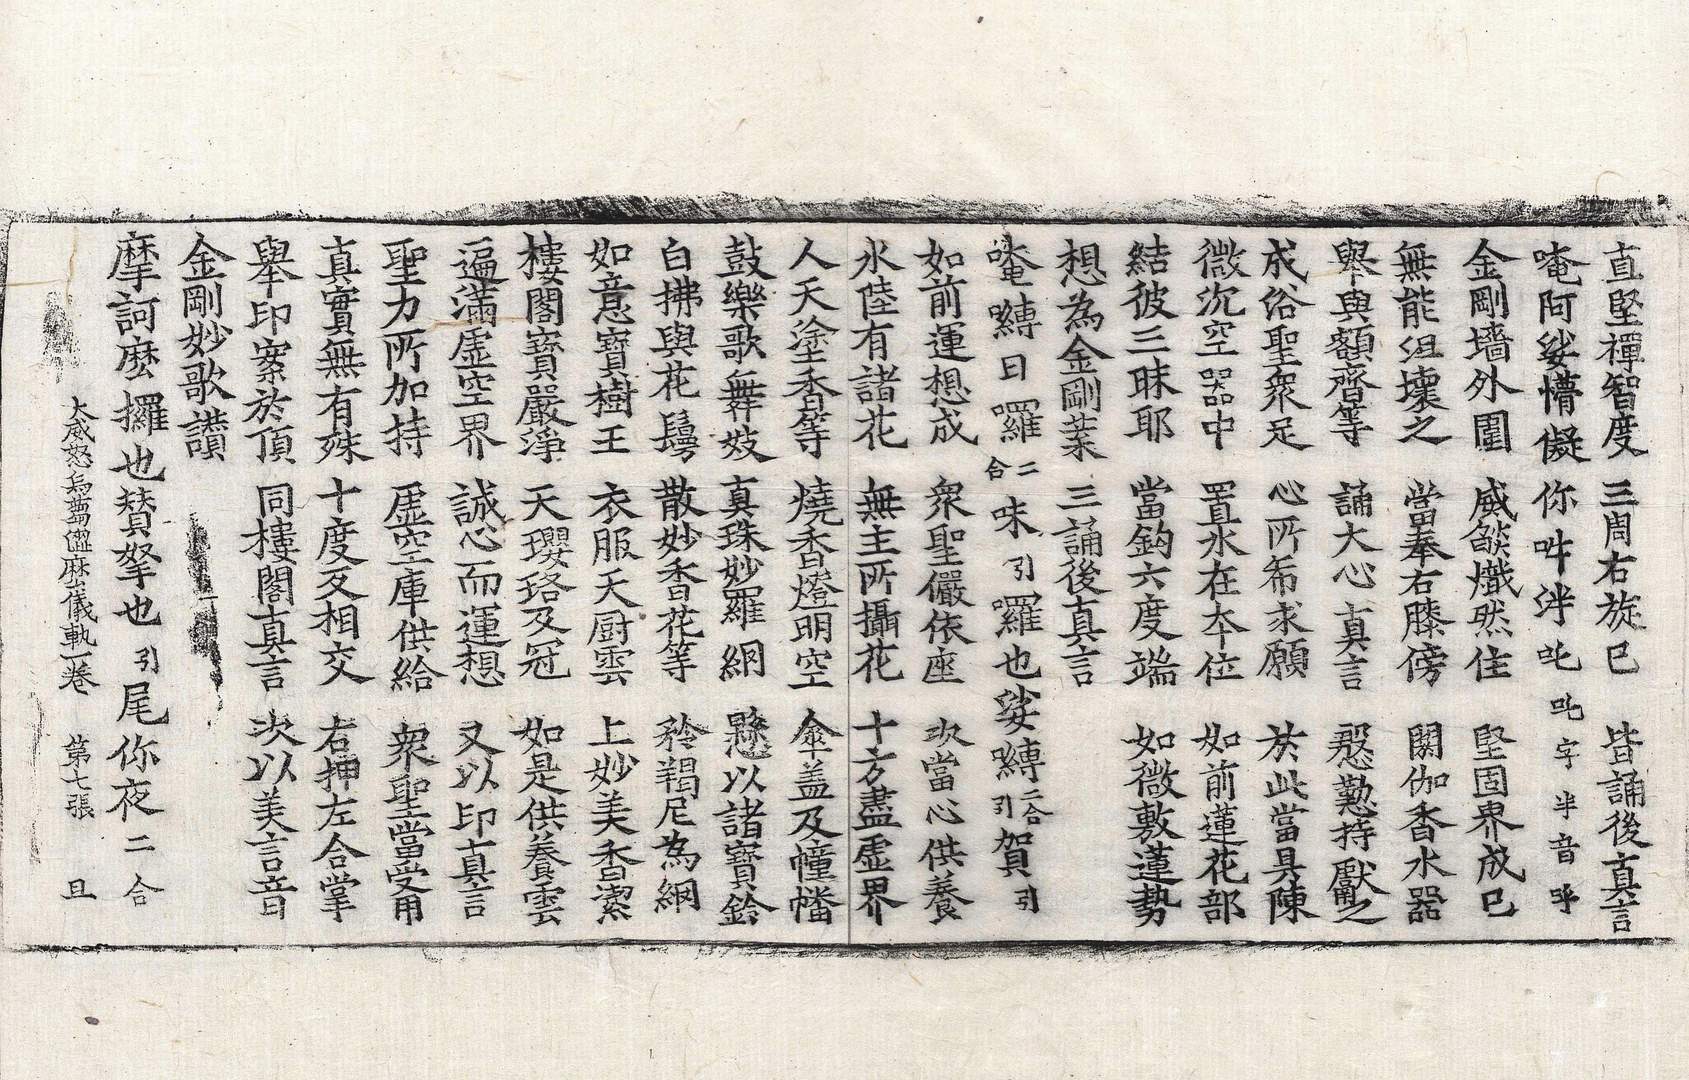 直堅禪智度 三周右旋已 皆誦後真言
唵阿娑懵儗 你吽泮吒 吒字半音呼
金剛墻外圍 威𦦨熾然住 堅固界成已
無能沮壞之 當奉右膝傍 閼伽香水器
舉與額齊等 誦大心真言 慇懃持獻之
成俗聖衆足 心所希求願 於此當具陳
微沉空器中 置水在本位 如前蓮花部
結彼三昧耶 當鈎六度端 如微敷蓮勢
想為金剛葉 三誦後真言
唵嚩日囉二合味引囉也娑嚩二合引賀引
如前運想成 衆聖儼依座 次當心供養
水陸有諸花 無主所攝花 十方盡虛界
人天塗香等 燒香燈明空 傘盖及幢幡
鼓樂歌舞妓 真珠妙羅網 懸以諸寶鈴
白拂與花鬘 散妙香花等 矜羯尼為網
如意寶樹王 衣服天厨雲 上妙美香潔
樓閣寶嚴淨 天瓔珞及冠 如是供養雲
遍滿虛空界 誠心而運想 又以印真言
聖力所加持 虛空庫供給 衆聖當受用
真實無有殊 十度叉相交 右押左合掌
舉印案於頂 同樓閣真言 次以美言音
金剛妙歌讃
摩訶麽攞也賛拏也引尾你夜二合
大威怒烏蒭澀麽儀軌一卷 第七張 旦